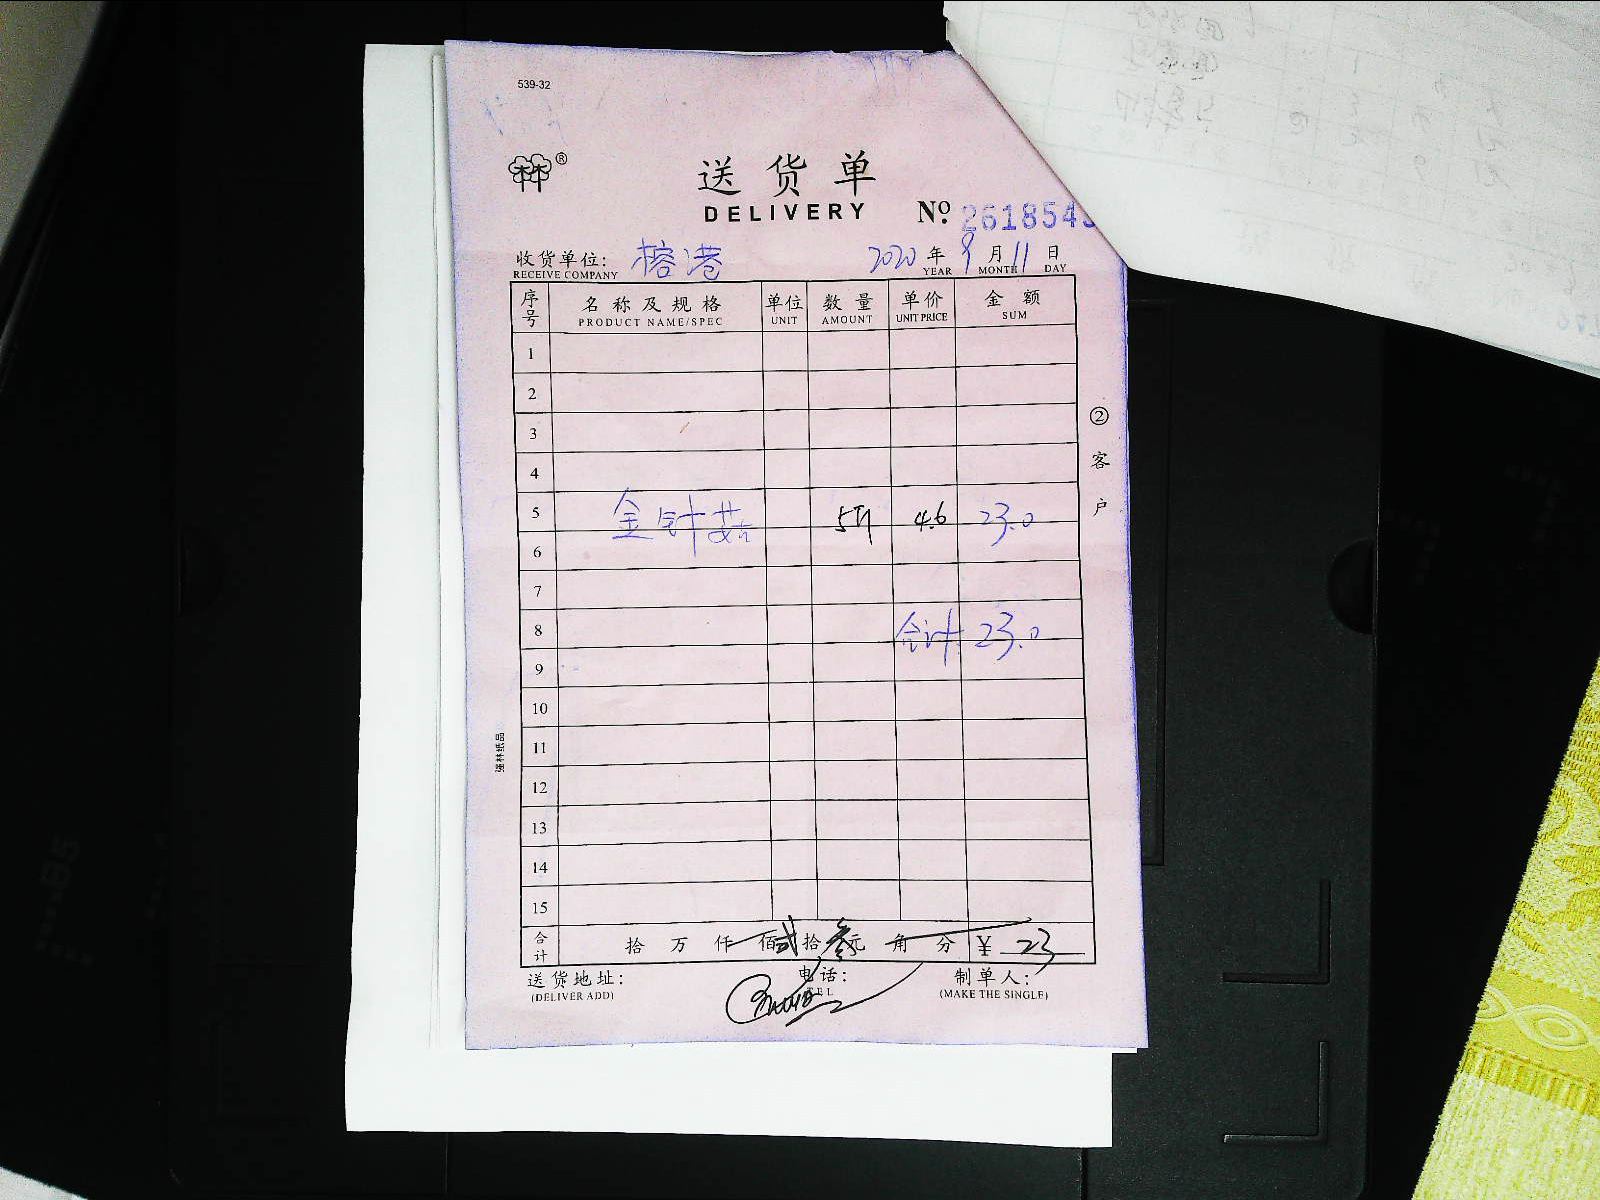 539-32
林林®
送货单
DELIVERY
№ 2618543
收货单位: 榕港 2020年9月11日
RECEIVE COMPANY YEAR MONTH DAY
序号 名称及规格 单位 数量 单价 金额
PRODUCT NAME/SPEC UNIT AMOUNT UNIT PRICE SUM
1
2
3
4
5 金针菇 5斤 4.6 23.0
6
7
8 合计 23.0
9
10
11
12
13
14
15
合计 拾 万 仟 佰 贰拾 叁元 角 分 ¥ 23
送货地址: 电话: 制单人:
(DELIVER ADD) TEL (MAKE THE SINGLE)
②客户
强林纸品
B5